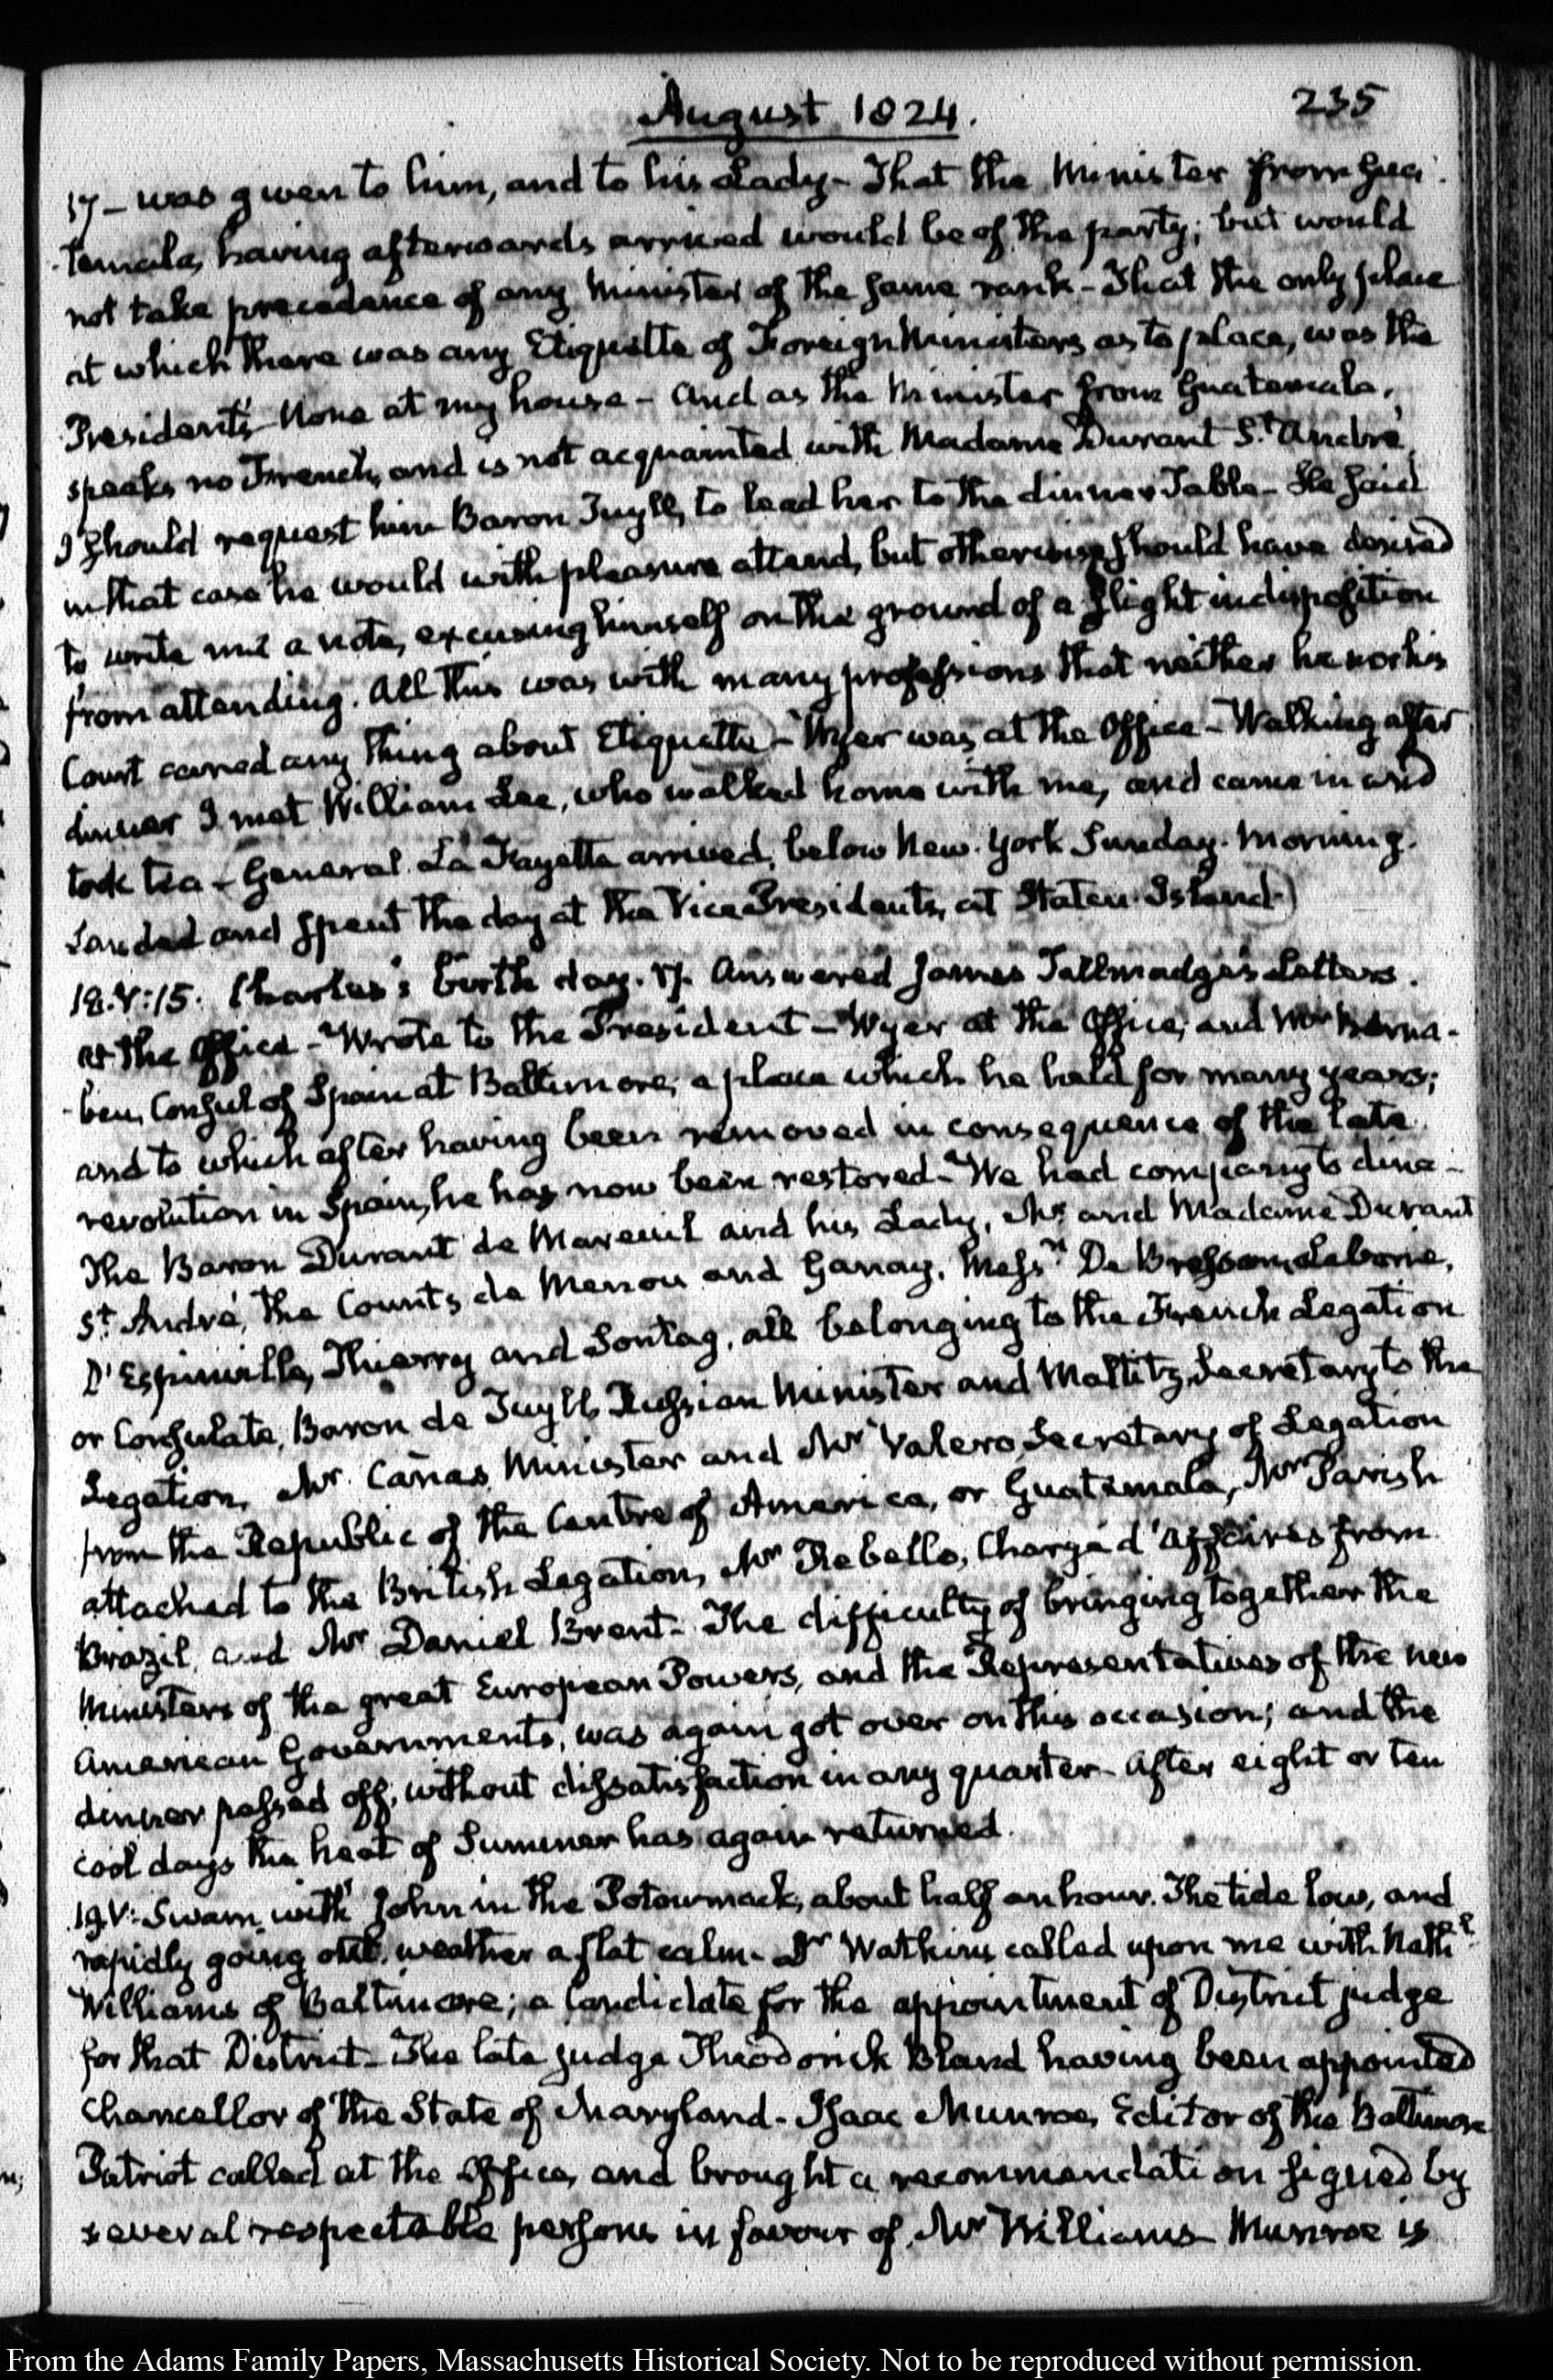 August 1824.
235
17 – was given to him, and to his Lady – That the Minister from Gua-
-temala, having afterwards arrived would be of the party; but would
not take precedence of any Minister of the same rank – That the only place
at which there was any Etiquette of Foreign Ministers, as to place, was the
President's – None at my house – And as the Minister from Guatemala,
speaks no French, and is not acquainted with Madame Durant St. André,
I should request him Baron Tuyll, to lead her to the dinner Table – He said
in that case he would with pleasure attend, but otherwise, should have desired
to write me a note, excusing himself on the ground of a slight indisposition
from attending. All this was with many professions that neither he nor his
Court cared any thing about Etiquette – Wyer was at the Office – Walking after
dinner I met William Lee, who walked home with me, and came in and
took tea – General La Fayette arrived, below New-York Sunday-Morning.
Landed and spent the day at the Vice Presidents, at Staten-Island.
18. V:15. Charles's birth day. 17. Answered James Tallmadge's Letters.
At the Office – Wrote to the President – Wyer at the Office, and Mr Berna-
-beu, Consul of Spain at Baltimore, a place which he held for many years;
and to which after having been removed in consequence of the late
revolution in Spain, he has now been restored – We had company to dine –
The Baron Durant de Mareuil and his Lady, Mr. and Madame Durant
St. André, the Counts de Menou and Ganay, Messrs De Bresson, Laborie,
D'Espinville, Thierry and Sontag, all belonging to the French Legation
or Consulate, Baron de Tuyll, Russian Minister and Maltitz, Secretary to the
Legation, Mr. Cañas, Minister and Mr Valero, Secretary of Legation
from the Republic of the Centre of America, or Guatemala, Mr Parish
attached to the British Legation, Mr Rebello, Chargé d'Affaires from
Brazil, and Mr Daniel Brent – The difficulty of bringing together the
Ministers of the great European Powers, and the Representatives of the new
American Governments, was again got over on this occasion; and the
dinner passed off, without dissatisfaction in any quarter – After eight or ten
cool days the heat of Summer has again returned.
19. V: Swam with John in the Potowmack, about half an hour. The tide low, and
rapidly going out, weather a flat calm – Dr Watkins called upon me with Nathl.
Williams of Baltimore; a Candidate for the appointment of District judge
for that District – The late judge Theodorick Bland having been appointed
Chancellor of the State of Maryland – Isaac Munroe, Editor of the Baltimore
Patriot called at the Office, and brought a recommendation signed by
several respectable persons in favour of Mr Williams – Munroe is
From the Adams Family Papers, Massachusetts Historical Society. Not to be reproduced without permission.